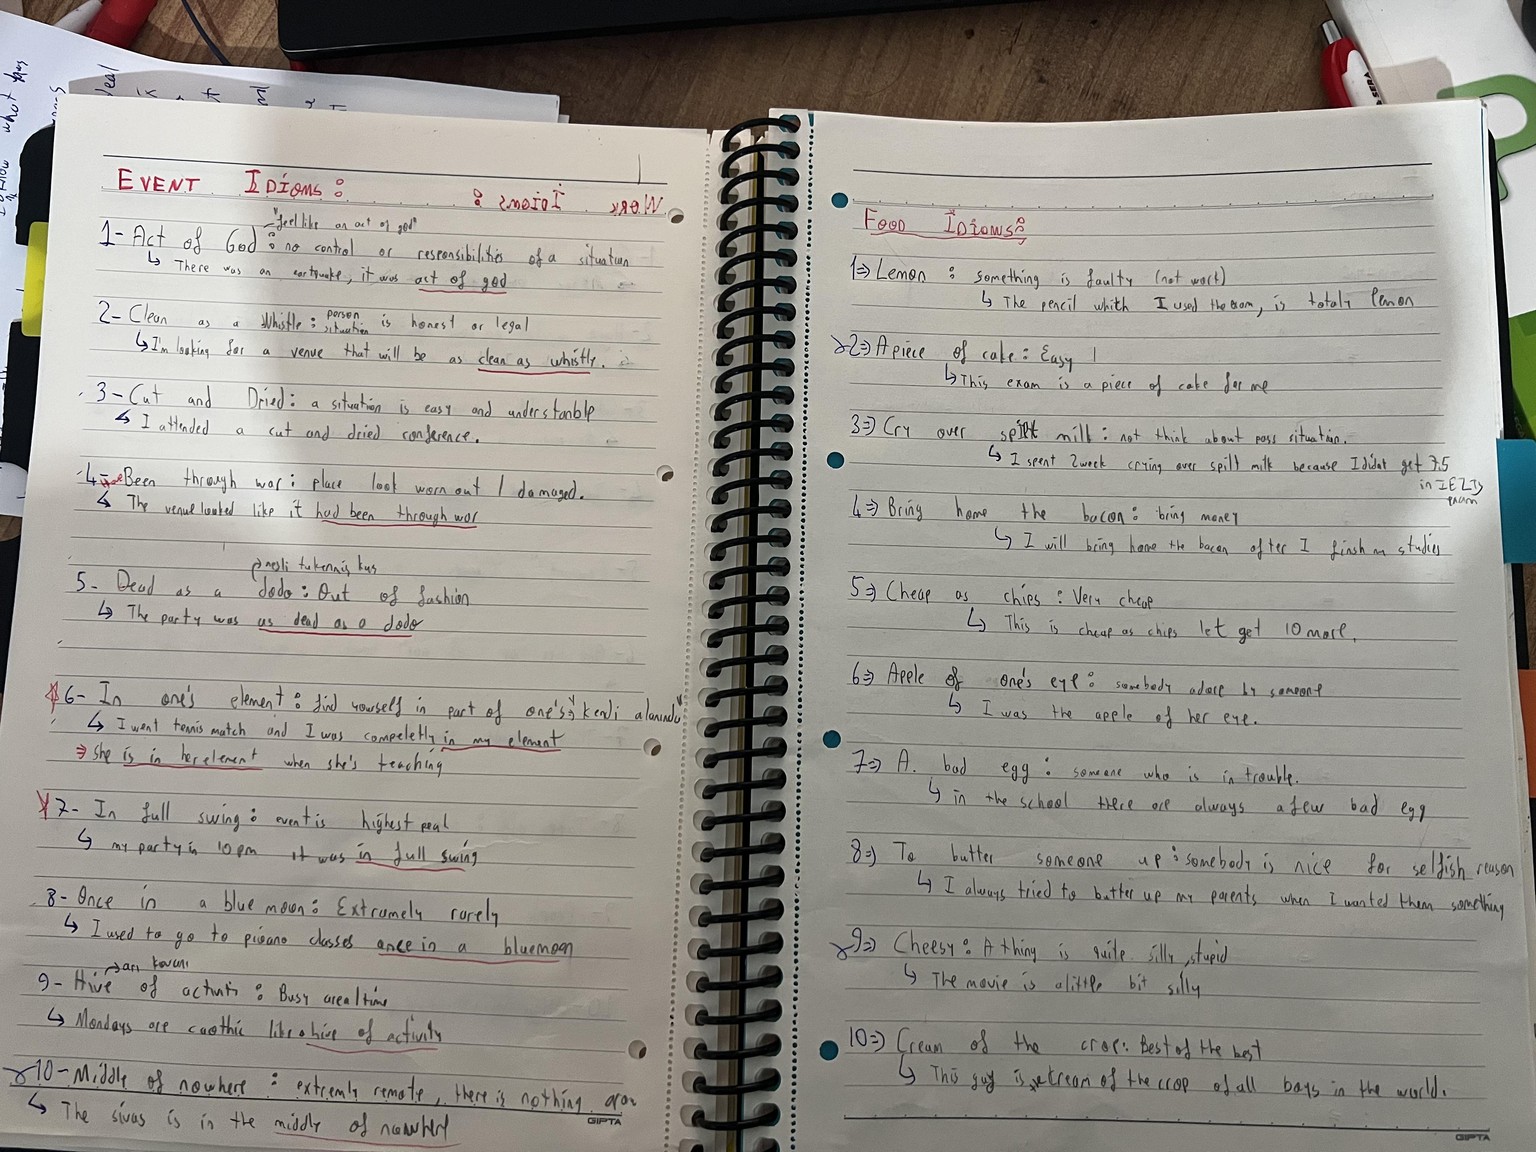 EVENT IDIOMS:
"feel like an act of god"
1- Act of God: no control or responsibilities of a situation
↳ There was an eartquake, it was act of god
2- Clean as a Whistle: person situation is honest or legal
↳ I'm looking for a venue that will be as clean as whistly.
3- Cut and Dried: a situation is easy and understanble
↳ I attended a cut and dried conference.
4- Been through war: place look worn out / damaged.
↳ The venue looked like it had been through war
nesli tukenmis kus
5- Dead as a dodo: Out of fashion
↳ The party was as dead as a dodo
6- In one's element: find yourself in part of one's "kendi alanında"
↳ I went tennis match and I was competetly in my element
⇒ she is in her element when she's teaching
7- In full swing: event is highest peal
↳ my party in 10 pm it was in full swing
8- Once in a blue moon: Extramely rarely
↳ I used to go to pieano classes once in a bluemoon
→ arı kovanı
9- Hive of activiti: Busy area/time
↳ Mondays are caothic like a hive of activity
10- Middle of nowhere: extremly remote, there is nothing
↳ The sivas is in the middle of nowhere
GIPTA
FOOD IDIOMS:
1⇒ Lemon: something is faulty (not work)
↳ The pencil which I used the exam, is totaly lemon
2⇒ A piece of cake: Easy
↳ This exam is a piece of cake for me
3⇒ Cry over spilt milk: not think about pass situation.
↳ I spent 2 week crying over spilt milk because I didnt get 7.5
in IELTS
exam
4⇒ Bring home the bacon: bring money
↳ I will bring home the bacon after I finsh m studies
5⇒ Cheap as chips: Very cheap
↳ This is cheap as chips let get 10 more.
6⇒ Apple of one's eye: somebody adore by someone
↳ I was the apple of her eye.
7⇒ A. bad egg: someone who is in trouble.
↳ in the school there are always a few bad egg
8⇒ To butter someone up: somebody is nice for selfish reason
↳ I always tried to butter up my parents when I wanted them something
9⇒ Cheesy: A thing is quite silly, stupid
↳ The movie is a little bit silly
10⇒ Cream of the crop: Best of the best
↳ This guy is cream of the crop of all boys in the world.
GIPTA